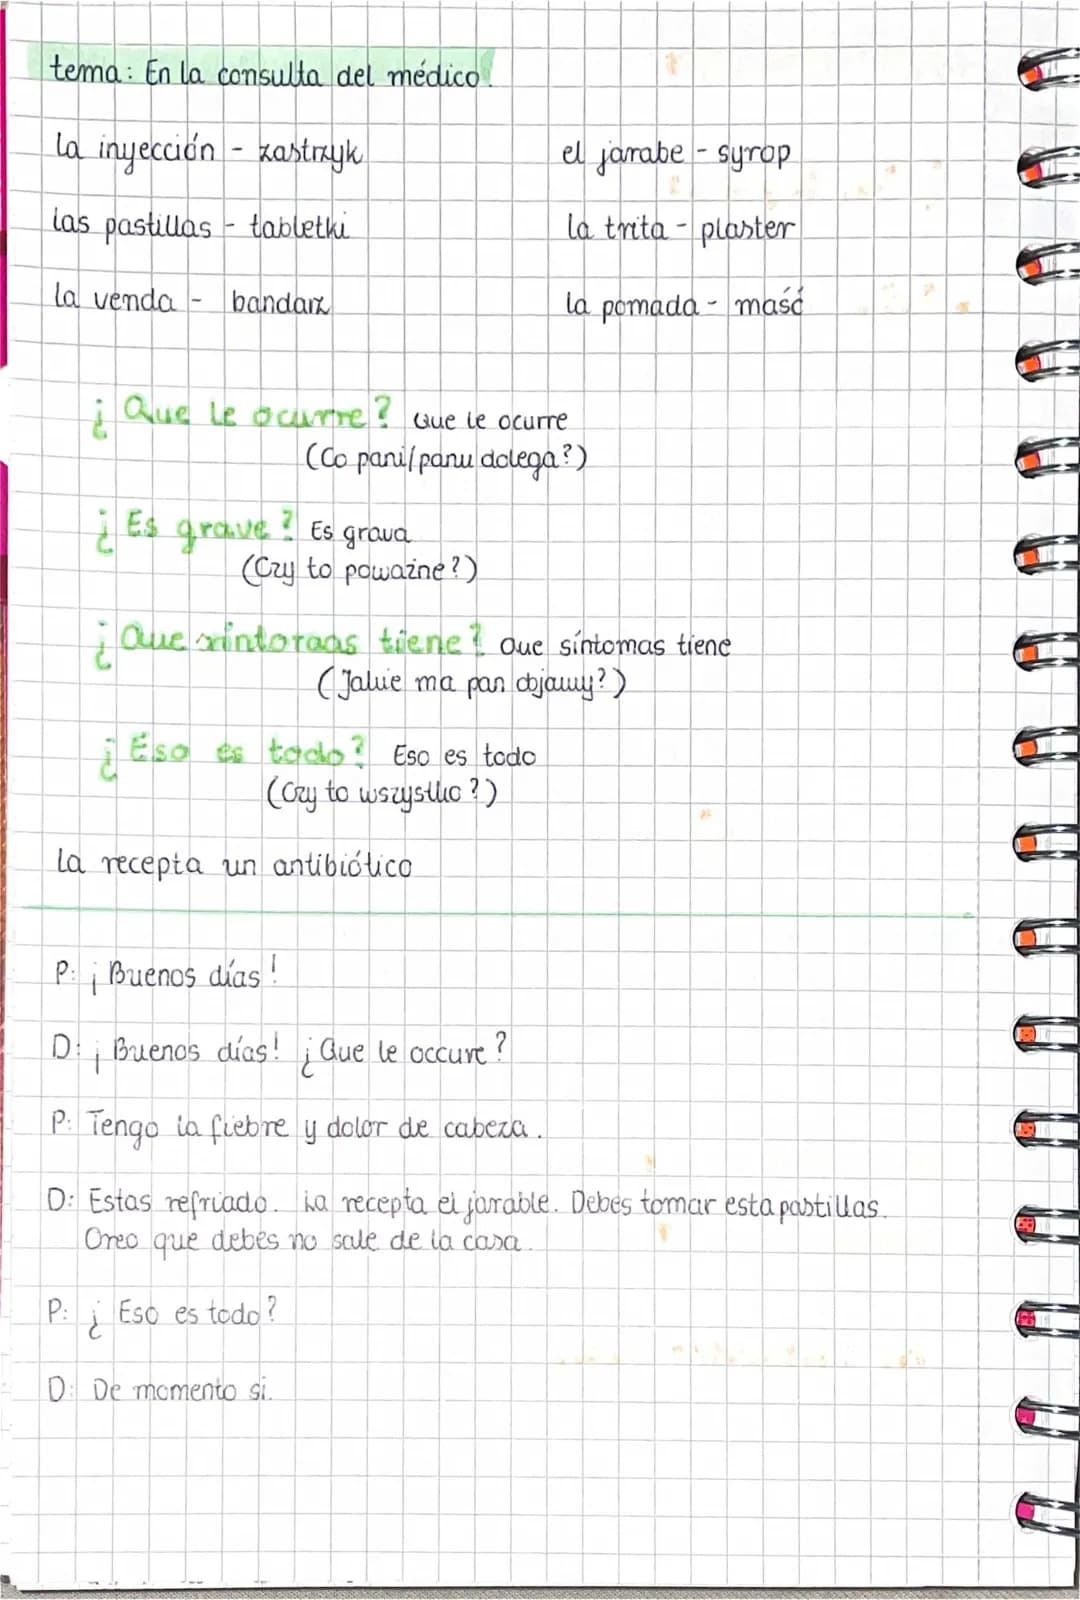 tema: En la consulta del médico.
la inyección - zastrzyk
el jarabe - syrop
las pastillas - tabletki
la trita - plaster
la venda - bandaż
la pomada - maść
¿Que le ocurre? Que le ocurre
(Co pani/panu dolega?)
¿Es grave? Es grava
(Czy to poważne?)
¿Que sintoraas tiene? Que síntomas tiene
(Jakie ma pan objawy?)
¿Eso es todo? Eso es todo
(Czy to wszystko?)
La recepta un antibiótico
P: ¡Buenos días!
D: ¡Buenos días! ¿Que le occure?
P: Tengo la fiebre y dolor de cabeza.
D: Estas refriado. La recepta el jarable. Debes tomar esta pastillas.
Creo que debes no sale de la casa.
P: ¿Eso es todo?
D: De momento si.